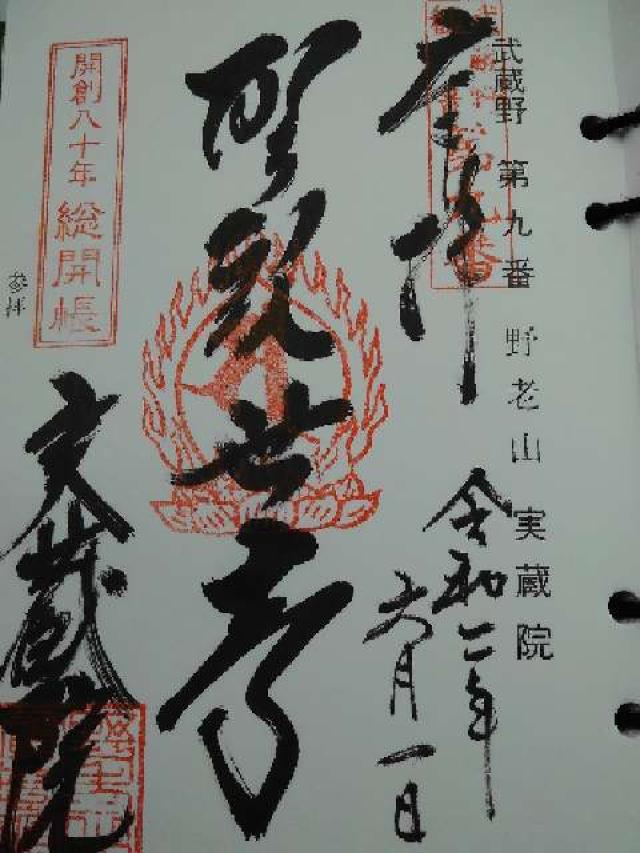 武蔵野 第九番 野老山 実蔵院
奉拝
令和二年
六月一日
聖観世音
開創八十年 総開帳
参拝
実蔵院